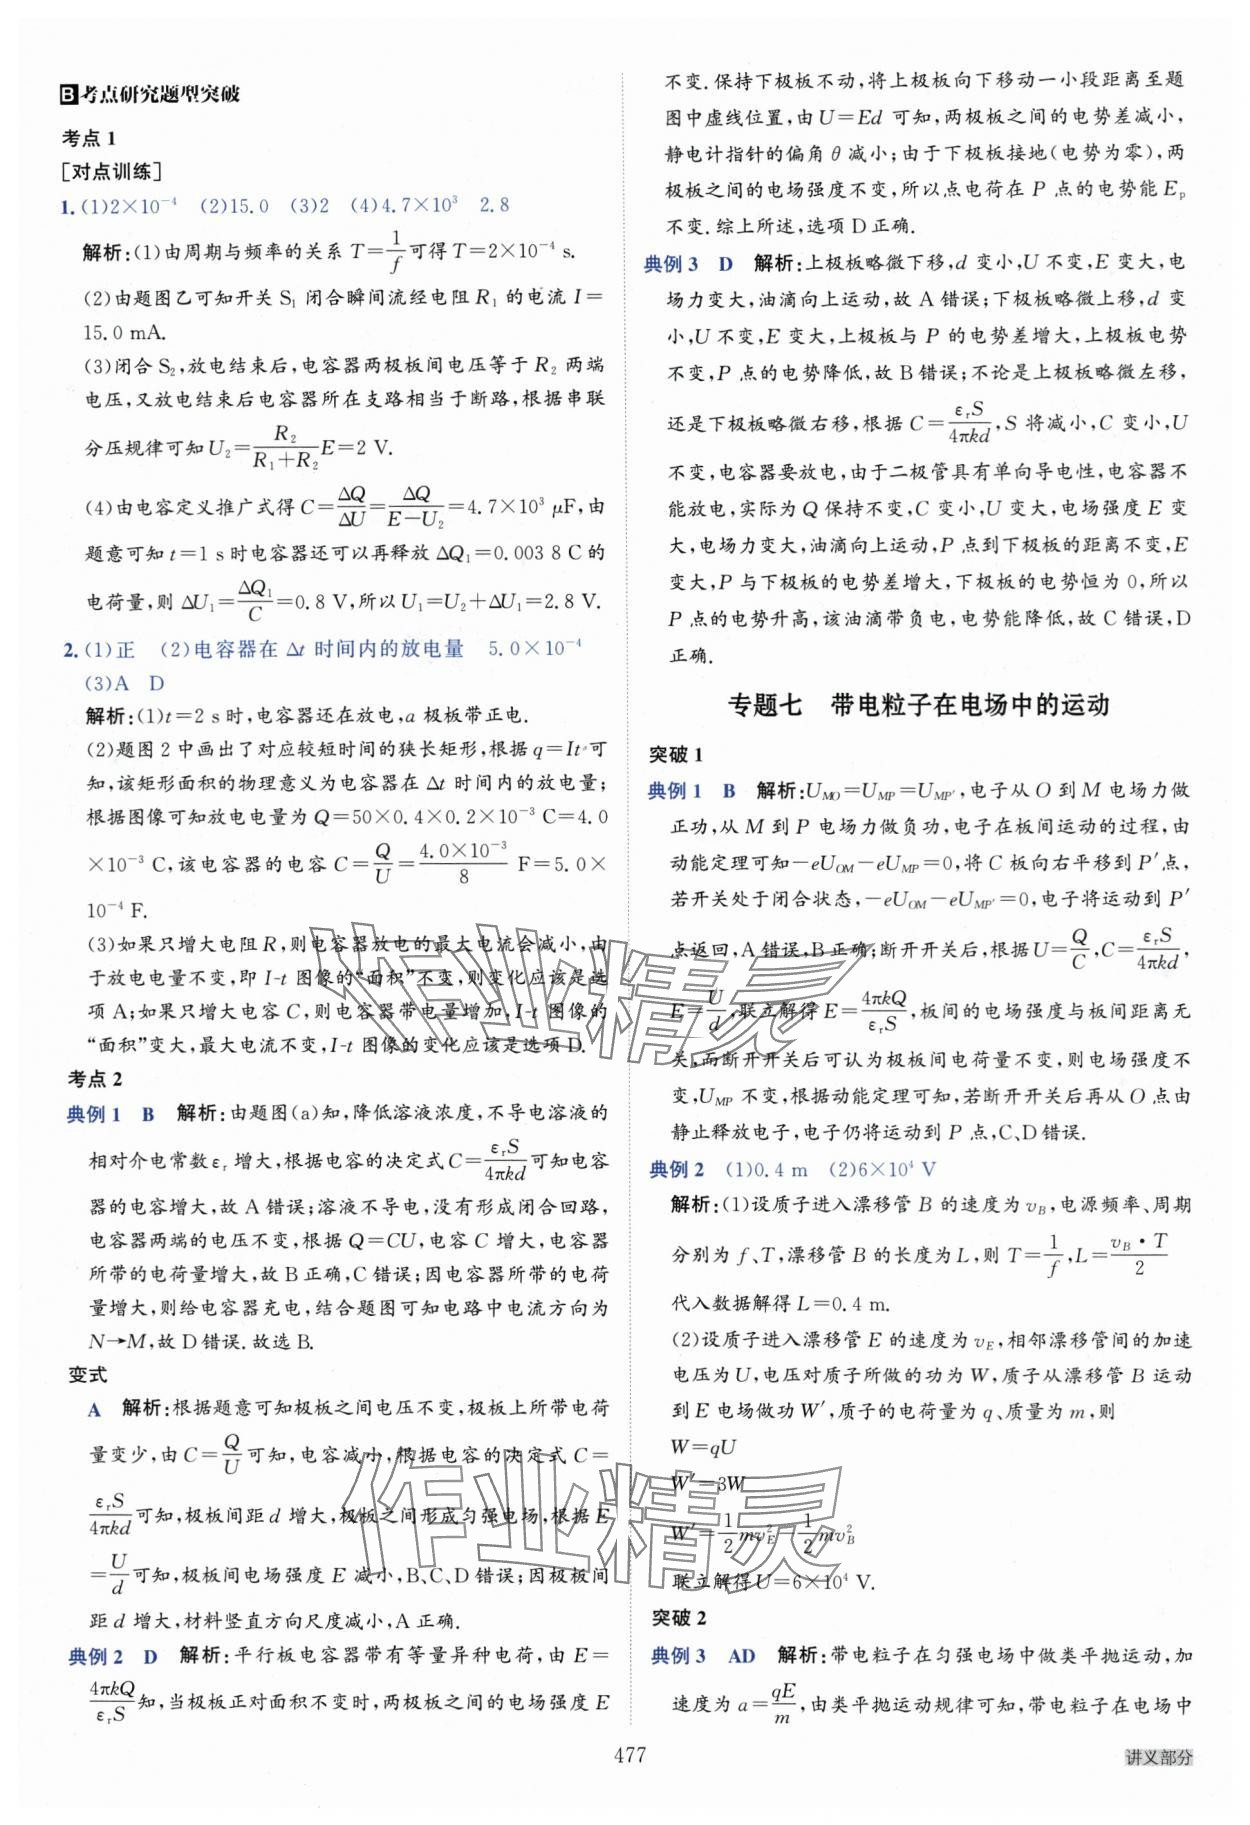 B考点研究题型突破
考点 1
[对点训练]
1. (1)2×10⁻⁴ (2)15.0 (3)2 (4)4.7×10³ 2.8
解析:(1)由周期与频率的关系 T=1/f可得 T=2×10⁻⁴ s.
(2)由题图乙可知开关 S₁ 闭合瞬间流经电阻 R₁ 的电流 I=
15.0 mA.
(3)闭合 S₂,放电结束后,电容器两极板间电压等于 R₂ 两端
电压,又放电结束后电容器所在支路相当于断路,根据串联
分压规律可知 U₂=R₂/(R₁+R₂)E=2 V.
(4)由电容定义推广式得 C=ΔQ/ΔU=ΔQ/(E-U₂)=4.7×10³ μF,由
题意可知 t=1 s 时电容器还可以再释放 ΔQ₁=0.003 8 C 的
电荷量,则 ΔU₁=ΔQ₁/C=0.8 V,所以 U₁=U₂+ΔU₁=2.8 V.
2. (1)正 (2)电容器在 Δt 时间内的放电量 5.0×10⁻⁴
(3)A D
解析:(1)t=2 s 时,电容器还在放电,a 极板带正电.
(2)题图 2 中画出了对应较短时间的狭长矩形,根据 q=It 可
知,该矩形面积的物理意义为电容器在 Δt 时间内的放电量;
根据图像可知放电电量为 Q=50×0.4×0.2×10⁻³ C=4.0
×10⁻³ C,该电容器的电容 C=Q/U=4.0×10⁻³/8 F=5.0×
10⁻⁴ F.
(3)如果只增大电阻 R,则电容器放电的最大电流会减小,由
于放电电量不变,即 I-t 图像的“面积”不变,则变化应该是选
项 A;如果只增大电容 C,则电容器带电量增加,I-t 图像的
“面积”变大,最大电流不变,I-t 图像的变化应该是选项 D.
考点 2
典例 1 B 解析:由题图(a)知,降低溶液浓度,不导电溶液的
相对介电常数 εᵣ 增大,根据电容的决定式 C=εᵣS/4πkd可知电容
器的电容增大,故 A 错误;溶液不导电,没有形成闭合回路,
电容器两端的电压不变,根据 Q=CU,电容 C 增大,电容器
所带的电荷量增大,故 B 正确,C 错误;因电容器所带的电荷
量增大,则给电容器充电,结合题图可知电路中电流方向为
N→M,故 D 错误.故选 B.
变式
A 解析:根据题意可知极板之间电压不变,极板上所带电荷
量变少,由 C=Q/U可知,电容减小,根据电容的决定式 C=
εᵣS/4πkd可知,极板间距 d 增大,极板之间形成匀强电场,根据 E
=U/d可知,极板间电场强度 E 减小,B、C、D 错误;因极板间
距 d 增大,材料竖直方向尺度减小,A 正确.
典例 2 D 解析:平行板电容器带有等量异种电荷,由 E=
4πkQ/εᵣS知,当极板正对面积不变时,两极板之间的电场强度 E
不变.保持下极板不动,将上极板向下移动一小段距离至题
图中虚线位置,由 U=Ed 可知,两极板之间的电势差减小,
静电计指针的偏角 θ 减小;由于下极板接地(电势为零),两
极板之间的电场强度不变,所以点电荷在 P 点的电势能 Eₚ
不变.综上所述,选项 D 正确.
典例 3 D 解析:上极板略微下移,d 变小,U 不变,E 变大,电
场力变大,油滴向上运动,故 A 错误;下极板略微上移,d 变
小,U 不变,E 变大,上极板与 P 的电势差增大,上极板电势
不变,P 点的电势降低,故 B 错误;不论是上极板略微左移,
还是下极板略微右移,根据 C=εᵣS/4πkd,S 将减小,C 变小,U
不变,电容器要放电,由于二极管具有单向导电性,电容器不
能放电,实际为 Q 保持不变,C 变小,U 变大,电场强度 E 变
大,电场力变大,油滴向上运动,P 点到下极板的距离不变,E
变大,P 与下极板的电势差增大,下极板的电势恒为 0,所以
P 点的电势升高,该油滴带负电,电势能降低,故 C 错误,D
正确.
专题七 带电粒子在电场中的运动
突破 1
典例 1 B 解析:U_MO=U_MP=U_MP′,电子从 O 到 M 电场力做
正功,从 M 到 P 电场力做负功,电子在板间运动的过程,由
动能定理可知-eU_OM-eU_MP=0,将 C 板向右平移到 P′点,
若开关处于闭合状态,-eU_OM-eU_MP′=0,电子将运动到 P′
点返回,A 错误,B 正确;断开开关后,根据 U=Q/C,C=εᵣS/4πkd,
E=U/d,联立解得 E=4πkQ/εᵣS,板间的电场强度与板间距离无
关,而断开开关后可认为极板间电荷量不变,则电场强度不
变,U_MP 不变,根据动能定理可知,若断开开关后再从 O 点由
静止释放电子,电子仍将运动到 P 点,C、D 错误.
典例 2 (1)0.4 m (2)6×10⁴ V
解析:(1)设质子进入漂移管 B 的速度为 v_B,电源频率、周期
分别为 f、T,漂移管 B 的长度为 L,则 T=1/f,L=v_B·T/2
代入数据解得 L=0.4 m.
(2)设质子进入漂移管 E 的速度为 v_E,相邻漂移管间的加速
电压为 U,电压对质子所做的功为 W,质子从漂移管 B 运动
到 E 电场做功 W′,质子的电荷量为 q、质量为 m,则
W=qU
W′=3W
W′=1/2mv_E²-1/2mv_B²
联立解得 U=6×10⁴ V.
突破 2
典例 3 AD 解析:带电粒子在匀强电场中做类平抛运动,加
速度为 a=qE/m,由类平抛运动规律可知,带电粒子在电场中
477
讲义部分
作业精灵
作业精灵